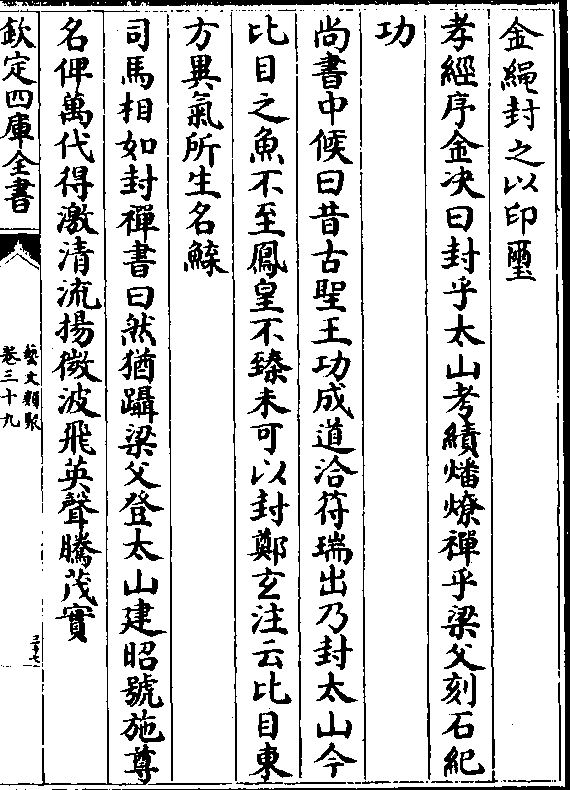 金繩封之以印璽
孝經序金决曰封乎太山考績燔燎禪乎梁父刻石紀
功
尚書中候曰昔古聖王功成道洽符瑞出乃封太山今
比目之魚不至鳳皇不臻未可以封鄭玄注云比目東
方異氣所生名鰈
司馬相如封禪書曰然猶躡梁父登太山建昭號施尊
名俾萬代得激清流揚微波飛英聲騰茂實
欽定四庫全書
藝文類聚
卷三十九